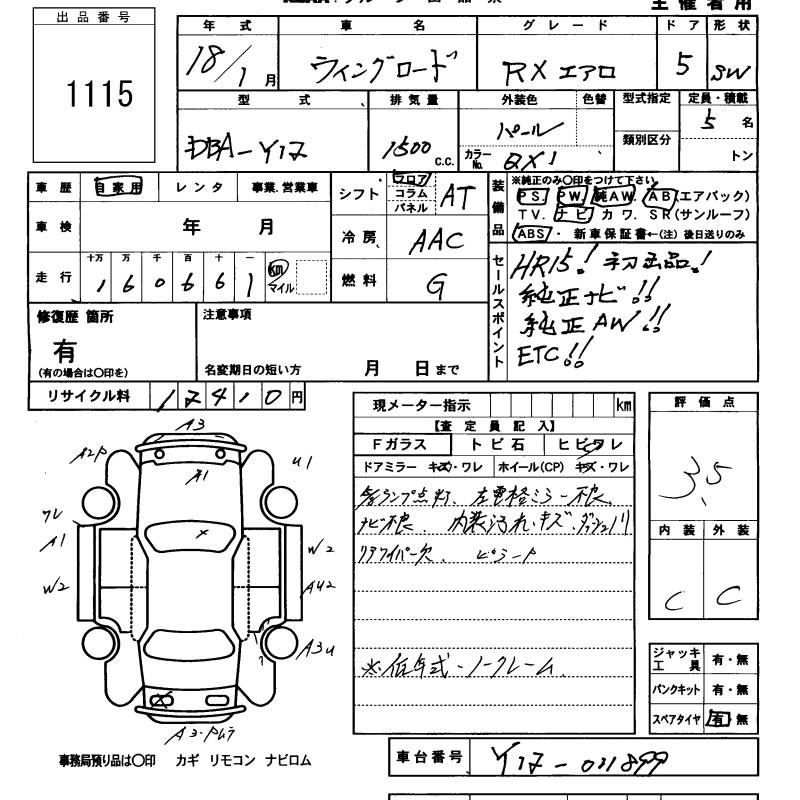 主催者用
出品番号
1115
年式 車名 グレード ドア 形状
18/1月 ウィングロード RX エアロ 5 SW
型式 排気量 外装色 色替 型式指定 定員・積載
DBA-Y12 1500 c.c. パール カラーNo. QX1 類別区分 5名
トン
車歴 自家用 レンタ 事業.営業車
車検 年 月
走行 十万 万 千 百 十 一 km マイル
160661
シフト フロア コラム パネル AT
冷房 AAC
燃料 G
装備品
※純正のみ〇印をつけて下さい
PS. PW. 純AW. AB(エアバック)
TV. ナビ カワ. SR(サンルーフ)
ABS・ 新車保証書←(注)後日送りのみ
セールスポイント
HR15! 初出品!
純正ナビ!!
純正AW!!
ETC!!
修復歴 箇所
有
(有の場合は〇印を)
注意事項
名変期日の短い方 月 日まで
リサイクル料 12410円
A3
A2P
A1
U1
ワレ
A1
W2
W2
AU2
A3U
事務局預り品は〇印 カギ リモコン ナビロム
現メーター指示 km
【査定員記入】
Fガラス トビ石 ヒビワレ
ドアミラー キズ・ワレ ホイール(CP) キズ・ワレ
ランプ点灯. 左電格ミラー不良.
ナビ不良. 内装汚れ・キズ・ダッシュノリ
リアワイパー欠.
※低年式・ノークレーム.
評価点
3.5
内装 外装
C C
ジャッキ工具 有・無
パンクキット 有・無
スペアタイヤ 有・無
車台番号 Y12-031899